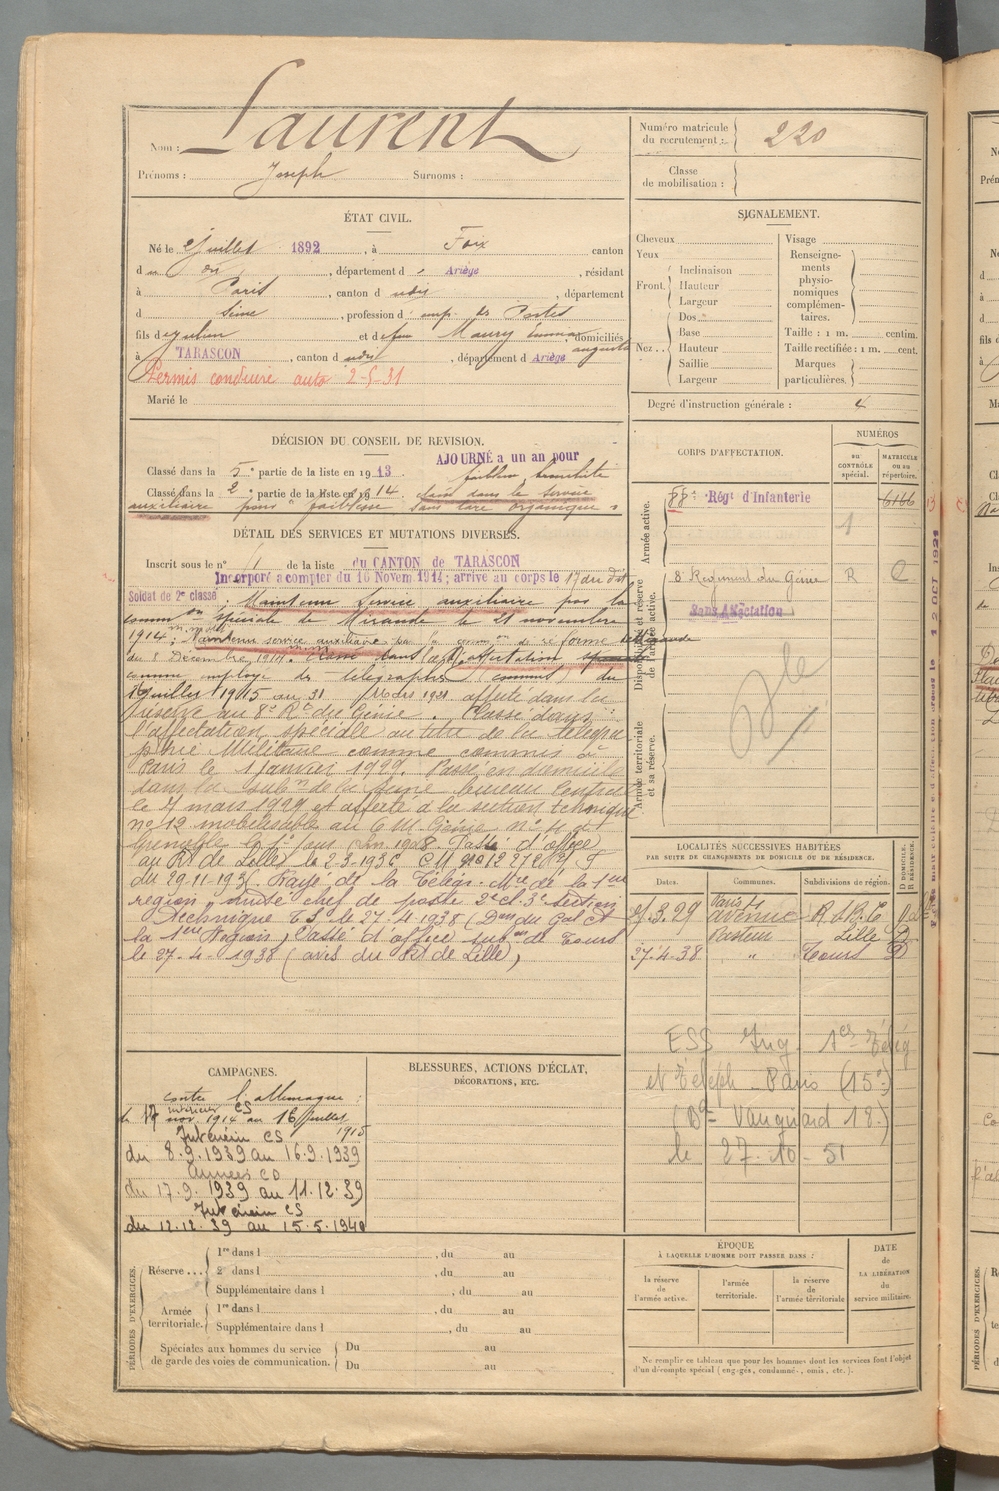 Nom : Laurent
Prénoms : Joseph Surnoms :
Numéro matricule du recrutement : 220
Classe de mobilisation :
ÉTAT CIVIL.
Né le 2 juillet 1892, à Foix canton
du dit, département d Ariège, résidant
à Paris, canton d udit, département
d Seine, profession d' emp. des Postes
fils d et de Maury Emma Augusta, domiciliés
à TARASCON, canton d udit, département d Ariège
Permis conduire auto 2-5-31
Marié le
SIGNALEMENT.
Cheveux
Yeux
Front. Inclinaison
Hauteur
Largeur
Nez.. Dos
Base
Hauteur
Saillie
Largeur
Visage
Renseignements physionomiques complémentaires.
Taille : 1 m. centim.
Taille rectifiée : 1 m. cent.
Marques particulières.
Degré d'instruction générale : 4
DÉCISION DU CONSEIL DE REVISION.
AJOURNÉ a un an pour
Classé dans la 5e partie de la liste en 1913. faiblesse
Classé dans la 2e partie de la liste en 1914. classé dans le service
auxiliaire pour faiblesse sans tare organique
DÉTAIL DES SERVICES ET MUTATIONS DIVERSES.
Inscrit sous le n° de la liste du CANTON de TARASCON
Incorporé a compter du 16 Novem. 1914; arrive au corps le 17 du dit
Soldat de 2e classe. Maintenu Service auxiliaire par la
comm on spéciale de Mirande le 21 novembre
1914; Maintenu service auxiliaire par la comm on de réforme de Mirande
du 8 Décembre 1914. Classé dans l'affectation
comme employé de télégraphe commis du
juillet 1915 au 31 Mars 1921 affecté dans la
réserve au 8e Rt du Génie. Classé dans
l'affectation spéciale au titre de la télégra
phie Militaire comme commis à
Paris le 1 janvier 1929. Passé en domicile
dans la Subon de la Seine bureau Central
le 7 mars 1929 et affecté à la section technique
no 12 mobilisable au C M Génie
Grenoble 1928. Passé d'office
au Rt de Lille le 2-3-1936
du 29.11.36. Rayé de la Télég. Mre de la 1ère
region, chef de poste 2e cl. 3e Section
technique T.S. le 27-4-1938
la 1ère Région, Passé d'office subon de Tours
le 27-4-1938 (avis du Rt de Lille),
CORPS D'AFFECTATION.
NUMÉROS
au contrôle spécial.
matricule ou au répertoire.
Armée active.
88e Régt d'Infanterie 6166
Disponibilité et réserve de l'armée active.
8e Régiment du Génie R
Sans Affectation
Armée territoriale et sa réserve.
LOCALITÉS SUCCESSIVES HABITÉES
PAR SUITE DE CHANGEMENTS DE DOMICILE OU DE RÉSIDENCE.
Dates. Communes. Subdivisions de région. D domicile. R résidence.
3.29 Paris avenue Pasteur Lille D
27-4-38 " Tours D
ESS Ing. Télég
et Téleph - Paris (15e)
le 27-10-51
CAMPAGNES.
contre l'allemagne :
intérieur CS
du 17 nov. 1914 au 16 juillet 1915
Intérieur CS
du 8.9.1939 au 16.9.1939
Armées CD
du 17.9.1939 au 11.12.39
Intérieur CS
du 12.12.39 au 15.5.1940
BLESSURES, ACTIONS D'ÉCLAT,
DÉCORATIONS, ETC.
PÉRIODES D'EXERCICES.
Réserve... 1re dans l , du au
2e dans l , du au
Supplémentaire dans l , du au
Armée territoriale. 1re dans l , du au
Supplémentaire dans l , du au
Spéciales aux hommes du service de garde des voies de communication. Du au
Du au
ÉPOQUE
À LAQUELLE L'HOMME DOIT PASSER DANS :
la réserve de l'armée active.
l'armée territoriale.
la réserve de l'armée territoriale
DATE de LA LIBÉRATION du service militaire.
Ne remplir ce tableau que pour les hommes dont les services font l'objet
d'un décompte spécial (engagés, condamnés, omis, etc.).